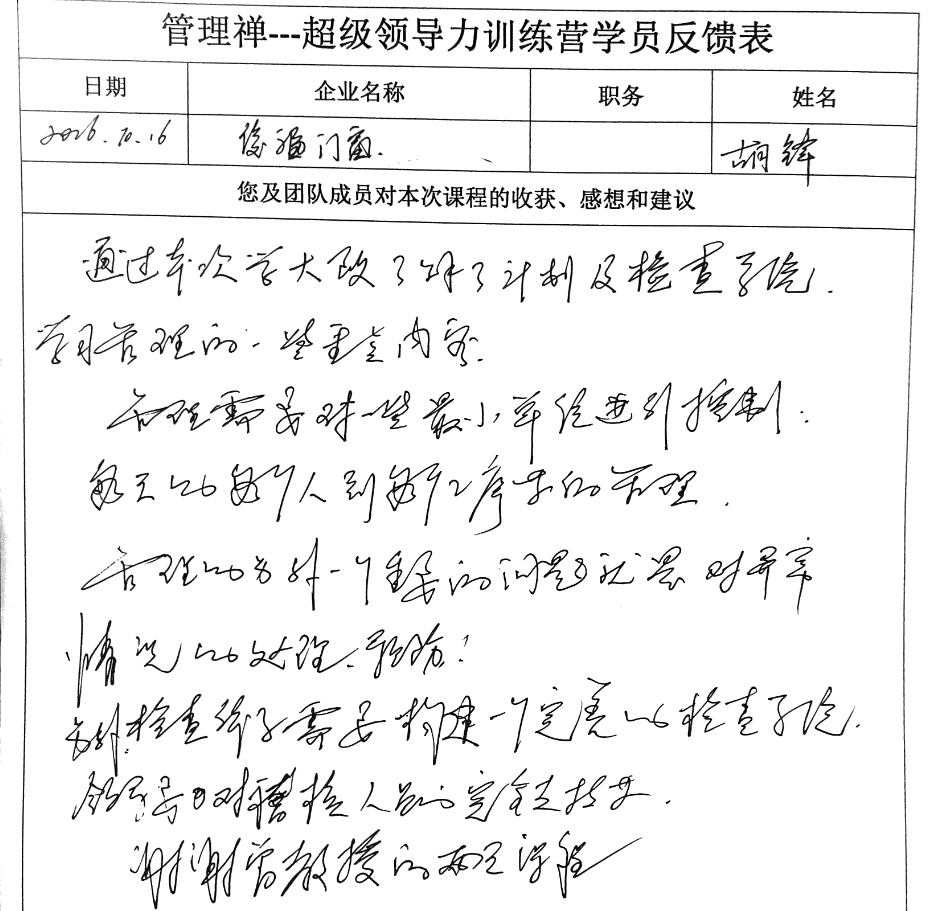 管理禅---超级领导力训练营学员反馈表
日期 企业名称 职务 姓名
2026.10.16 俊强门窗. 胡锋
您及团队成员对本次课程的收获、感想和建议
通过本次学大致了解了计划及检查系统.
学习管理的一些重点内容.
管理需要对一些最小单位进行控制.
每天的每个人到每个工序的管理.
管理的另外一个重要的问题就是对异常
情况的处理、预防!
另外.检查体系需要构建一个完善的检查系统.
领导对稽检人员的完全支持.
谢谢曾教授的两天课程